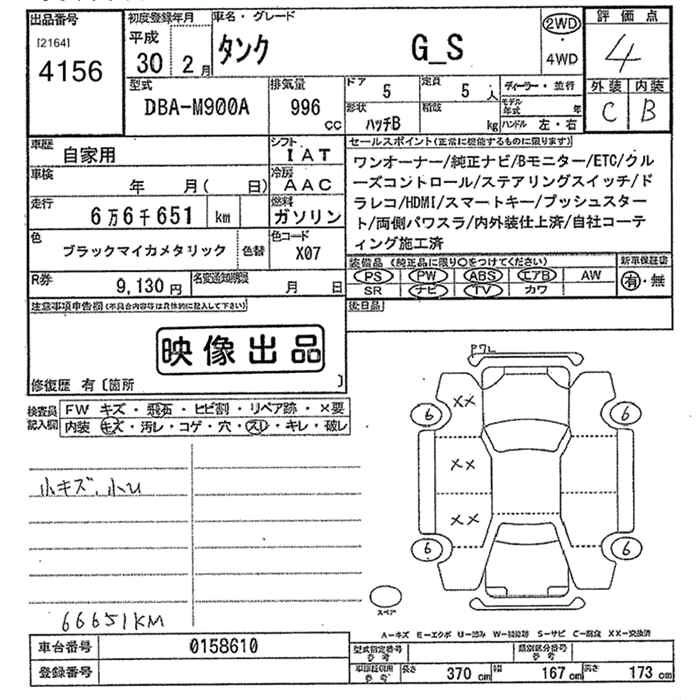 出品番号 初度登録年月 車名・グレード 2WD 評価点
[2164] 平成 タンク G_S ・ 4
4156 30 2月 4WD 外装 内装
型式 排気量 ドア 5 定員 5人 ディーラー・並行 C B
DBA-M900A 996 cc 形状 ハッチB 積載 kg モデル年式 年
ハンドル 左・右
車歴 自家用 シフト IAT セールスポイント(正常に機能するものに限ります)
車検 年 月( 日) 冷房 AAC ワンオーナー/純正ナビ/Bモニター/ETC/クル
ーズコントロール/ステアリングスイッチ/ド
走行 6万6千651 km 燃料 ガソリン ラレコ/HDMI/スマートキー/プッシュスター
ト/両側パワスラ/内外装仕上済/自社コーテ
色 ブラックマイカメタリック 色替 色コード X07 ィング施工済
装備品(純正品に限り○をつけてください) 新車保証書
R券 9,130円 名変通知期限 月 日 PS PW ABS エアB AW 有・無
SR ナビ TV カワ
注意事項申告欄(不具合内容等は具体的に記入して下さい) 後日品
映像出品
修復歴 有〔箇所 〕
検査員記入欄 FW キズ・飛石・ヒビ割・リペア跡・×要
内装 キズ・汚レ・コゲ・穴・スレ・キレ・破レ
小キズ、小U
66651KM
P7L
××
6 6
××
××
6 6
スペア
A-キズ E-エクボ U-凹み W-補修跡 S-サビ C-腐食 XX-交換済
車台番号 0158610 型式指定番号 参考 類別区分番号 参考
登録番号 車検証併用 参考 長さ 370 cm 幅 167 cm 高さ 173 cm